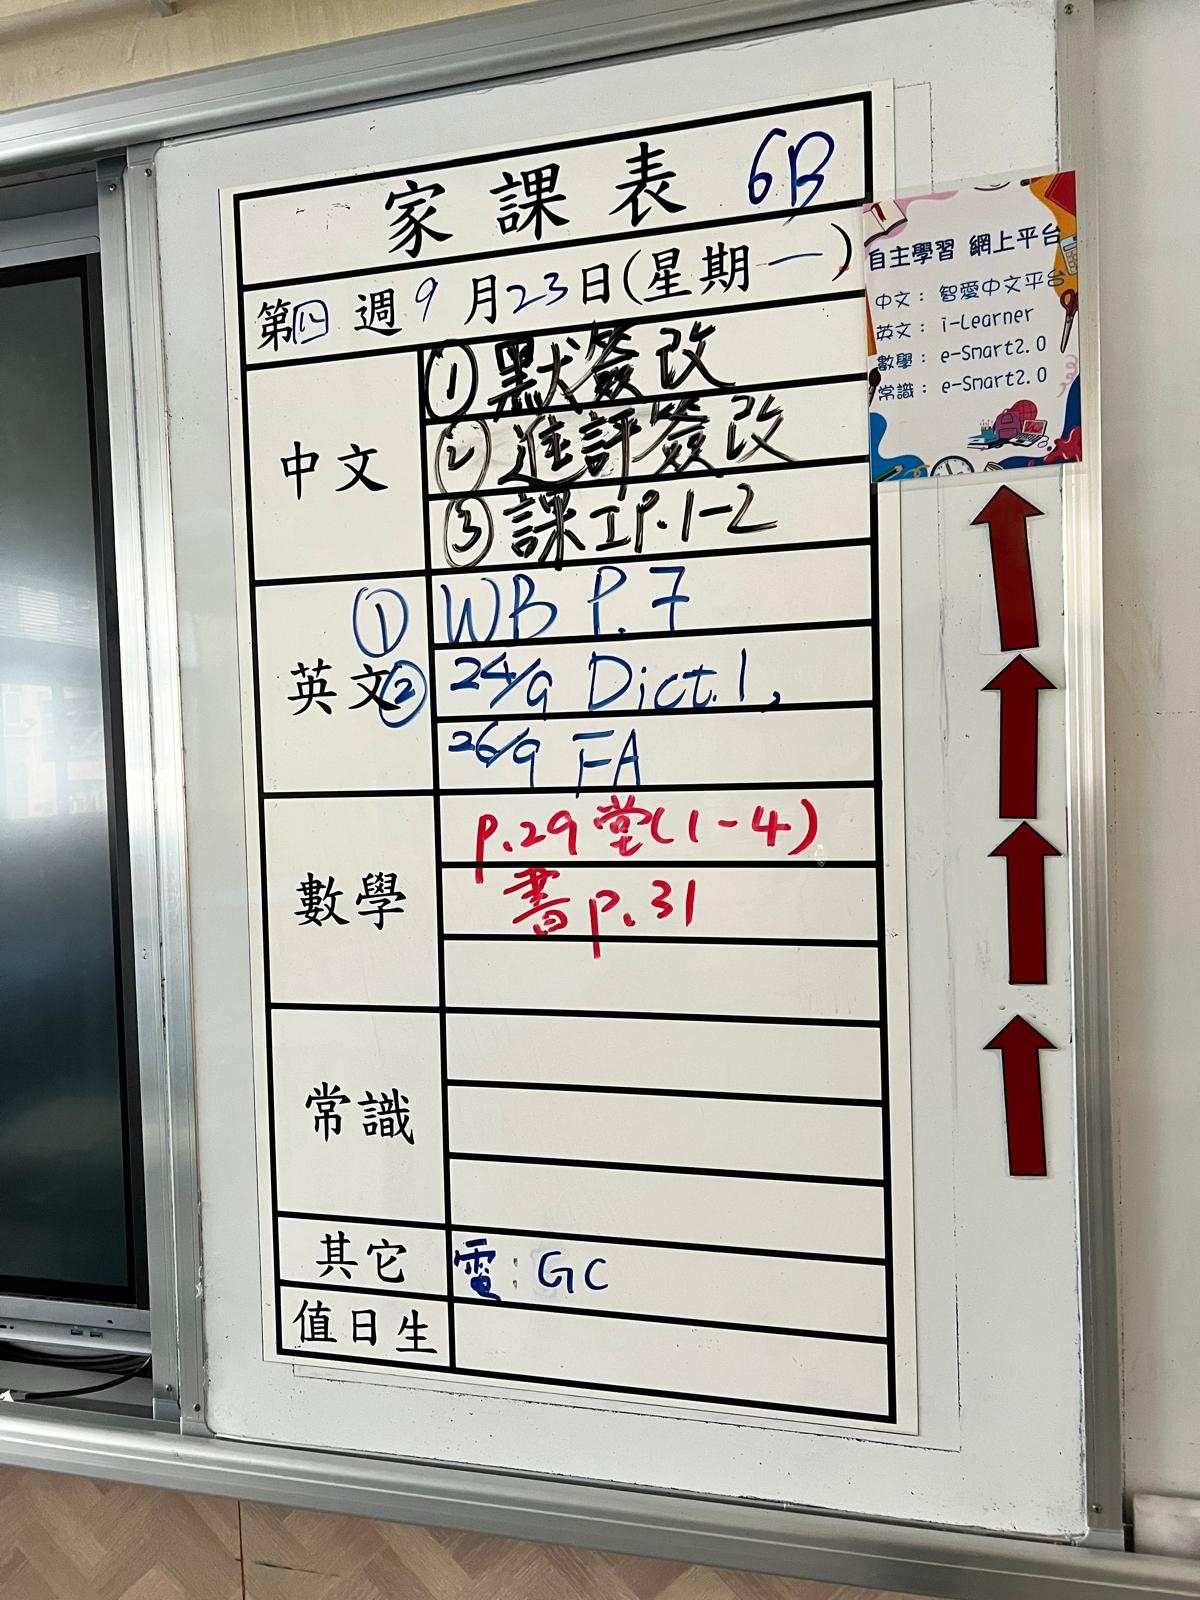 家課表 6B
第四週 9月23日(星期一)
中文
① 默簽改
② 進評簽改
③ 課工P.1-2
英文
① WB P.7
② 24/9 Dict.1,
26/9 FA
數學
p.29堂(1-4)
書p.31
常識
其它
電: GC
值日生
自主學習 網上平台
中文: 智愛中文平台
英文: i-Learner
數學: e-Smart2.0
常識: e-Smart2.0